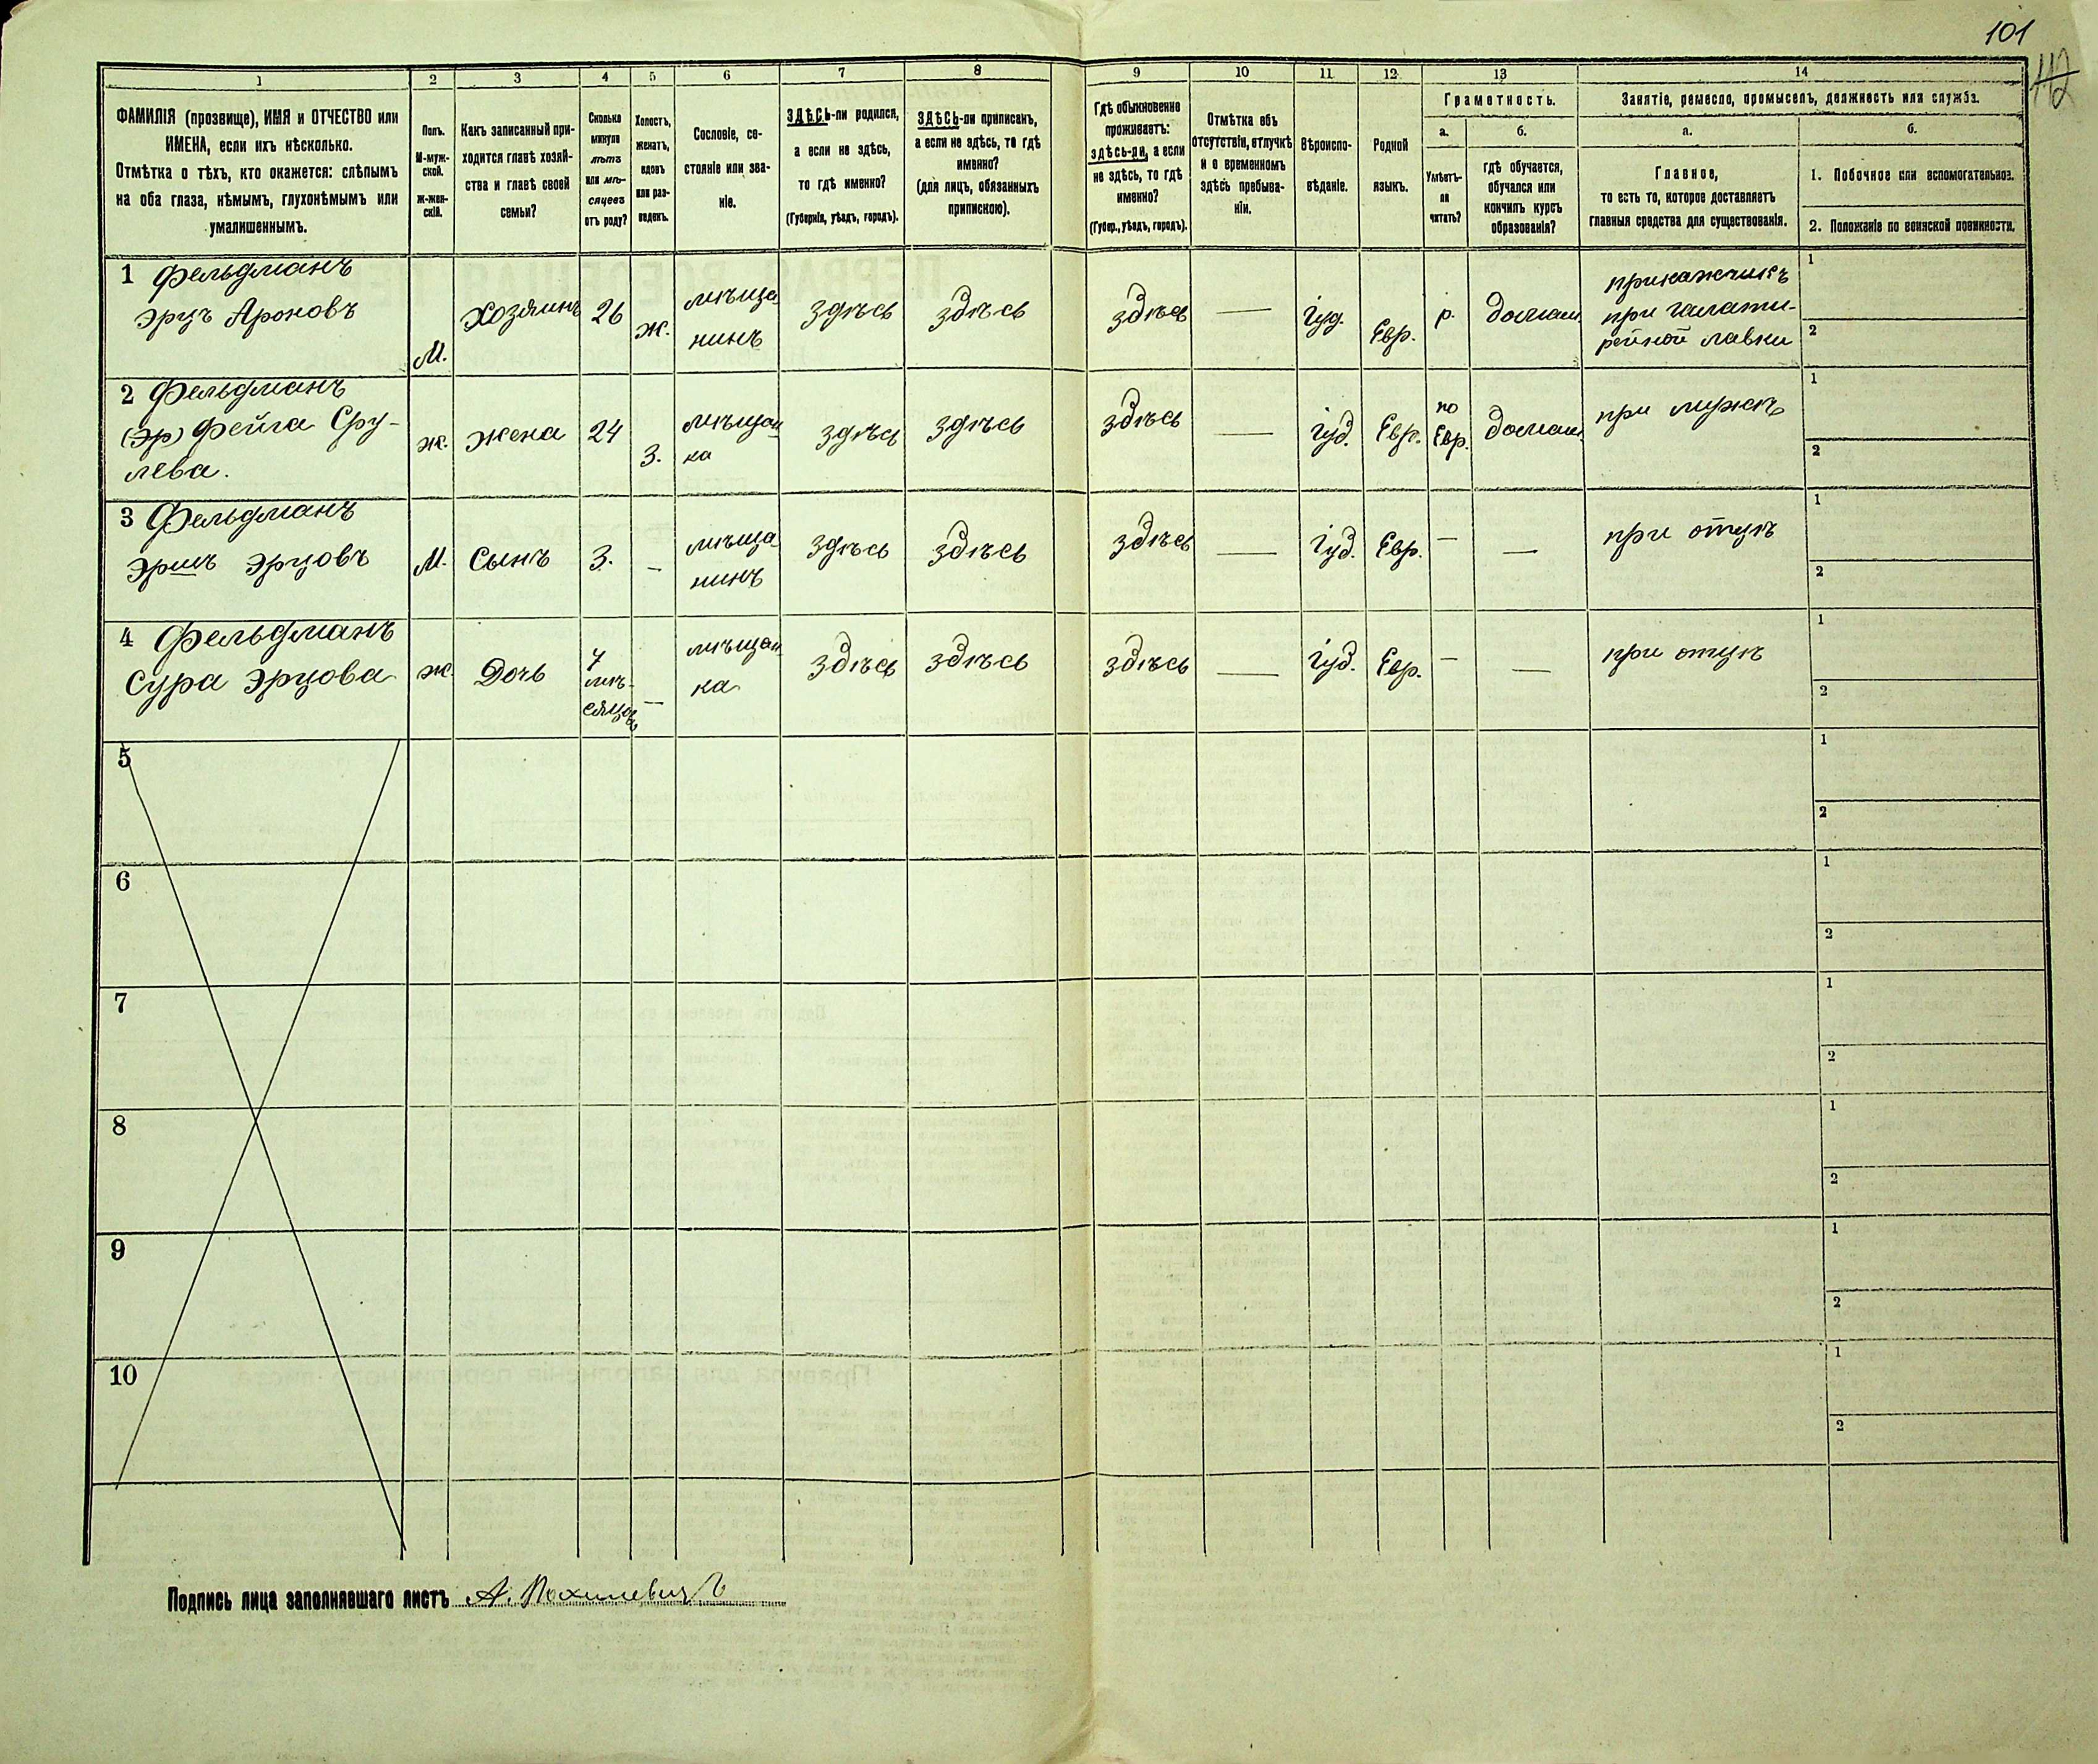 101
112
1
2
3
4
5
6
7
8
9
10
11
12
13
14
ФАМИЛІЯ (прозвище), ИМЯ и ОТЧЕСТВО или
ИМЕНА, если ихъ нѣсколько.
Отмѣтка о тѣхъ, кто окажется: слѣпымъ
на оба глаза, нѣмымъ, глухонѣмымъ или
умалишеннымъ.
Полъ.
М-муж-
ской.
ж-жен-
скій.
Какъ записанный при-
ходится главѣ хозяй-
ства и главѣ своей
семьи?
Сколько
минуло
лѣтъ
или мѣ-
сяцевъ
отъ роду?
Холостъ,
женатъ,
вдовъ
или раз-
веденъ.
Сословіе, со-
стояніе или зва-
ніе.
ЗДѢСЬ-ли родился,
а если не здѣсь,
то гдѣ именно?
(Губернія, уѣздъ, городъ).
ЗДѢСЬ-ли приписанъ,
а если не здѣсь, то гдѣ
именно?
(для лицъ, обязанныхъ
припискою).
Гдѣ обыкновенно
проживаетъ:
здѣсь-ли, а если
не здѣсь, то гдѣ
именно?
(Губер., уѣздъ, городъ).
Отмѣтка объ
отсутствіи, отлучкѣ
и о временномъ
здѣсь пребыва-
ніи.
Вѣроиспо-
вѣданіе.
Родной
языкъ.
Грамотность.
а.
б.
Умѣетъ-
ли
читать?
гдѣ обучается,
обучался или
кончилъ курсъ
образованія?
Занятіе, ремесло, промыселъ, должность или служба.
а.
б.
Главное,
то есть то, которое доставляетъ
главныя средства для существованія.
1. Побочное или вспомогательное.
2. Положеніе по воинской повинности.
1 Фельдманъ
Эрцъ Ароновъ
М.
Хозяинъ
26
ж.
мѣща-
нинъ
здѣсь
здѣсь
здѣсь
—
Іуд.
Евр.
р.
домаш.
прикажчикъ
при галате-
рейной лавки
1
2
2 Фельдманъ
(Эр) Фейга Сру-
лева.
ж.
жена
24
з.
мѣщан
ка
здѣсь
здѣсь
здѣсь
—
Іуд.
Евр.
по
Евр.
домаш.
при мужѣ
1
2
3 Фельдманъ
Эршъ Эрцовъ
М.
Сынъ
3.
–
мѣща
нинъ
здѣсь
здѣсь
здѣсь
—
Іуд.
Евр.
–
—
при отцѣ
1
2
4 Фельдманъ
Сура Эрцова
ж.
Дочь
7
мѣ-
сяцовъ
—
мѣщан
ка
здѣсь
здѣсь
здѣсь
—
Іуд.
Евр.
–
—
при отцѣ
1
2
5
1
2
6
1
2
7
1
2
8
1
2
9
1
2
10
1
2
Подпись лица заполнявшаго листъ А. Похилевичъ